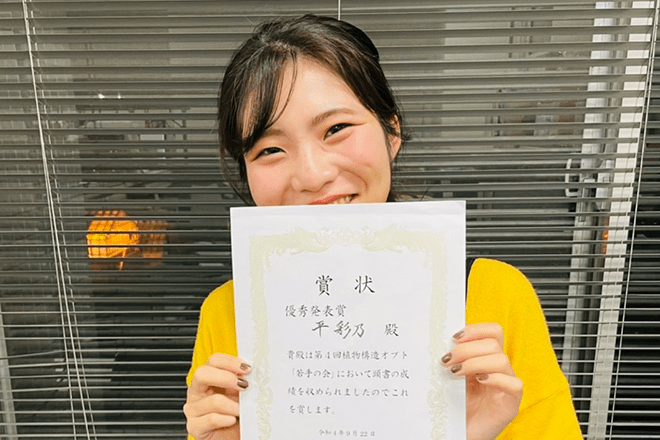 賞状
優秀発表賞
平彩乃 殿
貴殿は第4回植物構造オプト
「若手の会」において頭書の成
績を収められましたのでこれ
を賞します。
令和4年9月22日